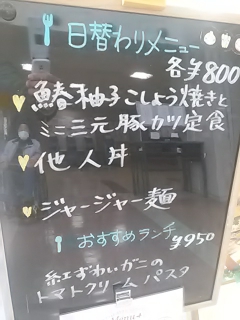 日替わりメニュー
各¥800
鰆柚子こしょう焼きと
ミニ三元豚カツ定食
他人丼
ジャージャー麺
おすすめランチ
¥950
紅ずわいガニの
トマトクリームパスタ